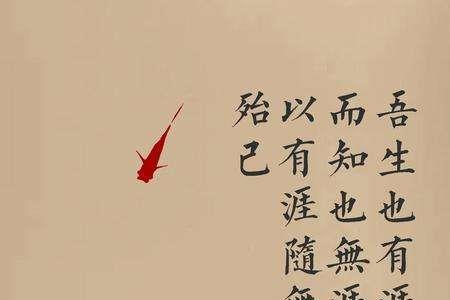 吾生也有
而知也無
以有涯隨
殆已